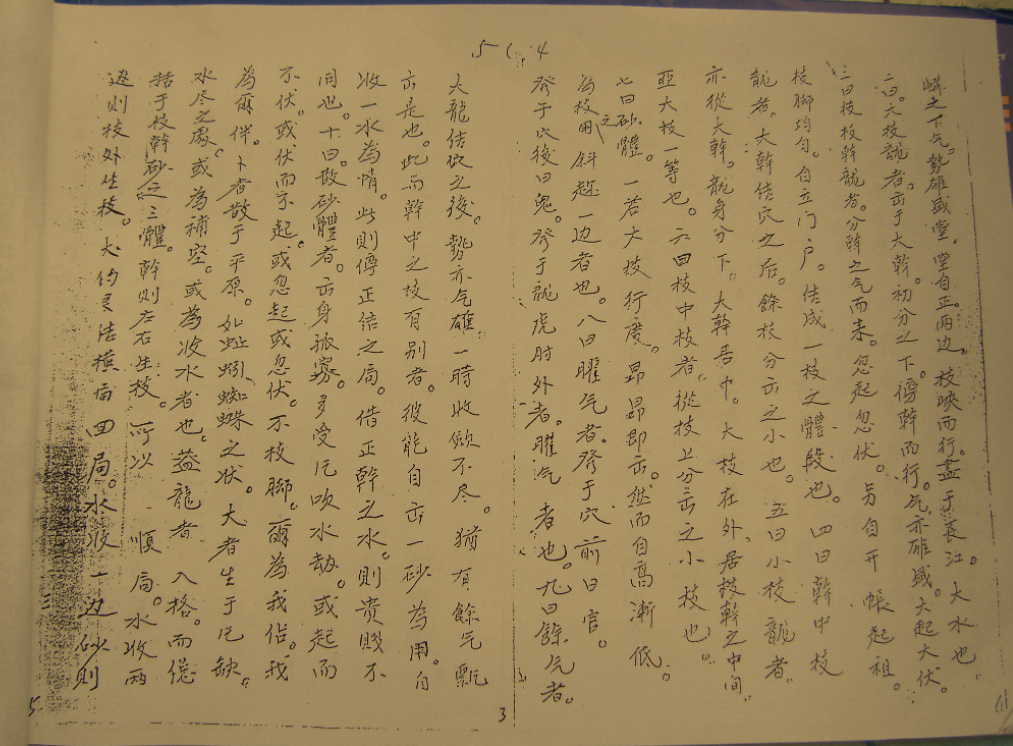 5 ( 4
嶂之下气。势雄盛堂,堂自正两边。枝映而行。盡于長江。大水也
二曰。大枝龍者。出于大幹。初分之下。傍幹而行。气亦雄盛。大起大伏。
三曰枝枝幹龍者。分幹之气而来。忽起忽伏。另自开帳起祖。
枝脚均匀。自立门户。结成一枝之體段也。四曰幹中枝
龍者。大幹结穴之后。餘枝分出之小也。五曰小枝龍者。
亦從大幹。龍身分下。大幹居中。大枝在外。居枝幹之中间
亞大枝一等也。六曰枝中枝者。從枝上分出之小枝也。
七曰砂之體。一若大枝行度。昂昂即出。继而自高漸低。
為枝用斜趋一边者也。八曰曜气者。發于穴前曰官。
發于穴後曰鬼。發于龍虎肘外者。曜气者也。九曰餘气者。
大龍结穴之後。勢亦气雄。一時收歛不尽。猶有餘气飄
出是也。此与幹中之枝有别者。彼能自出一砂為用。自
收一水為情。此则傍正结之局。借正幹之水。則贵贱不
同也。十曰。散砂體者。出身孤寡。多受风吹水劫。或起而
不伏。或伏而不起。或忽起或忽伏。不枝脚。爾為我佔。我
為爾伴。卜者散于平原。如蚯蚓蜘蛛之状。大者生于风缺。
水尽之處。或為補空。或為收水者也。盖龍者入格。而總
括于枝幹砂之三體。幹則左右生枝。可以順局。水收两
边则枝外生枝。大约灵活橫局回局。水收一边砂則
3
5
6